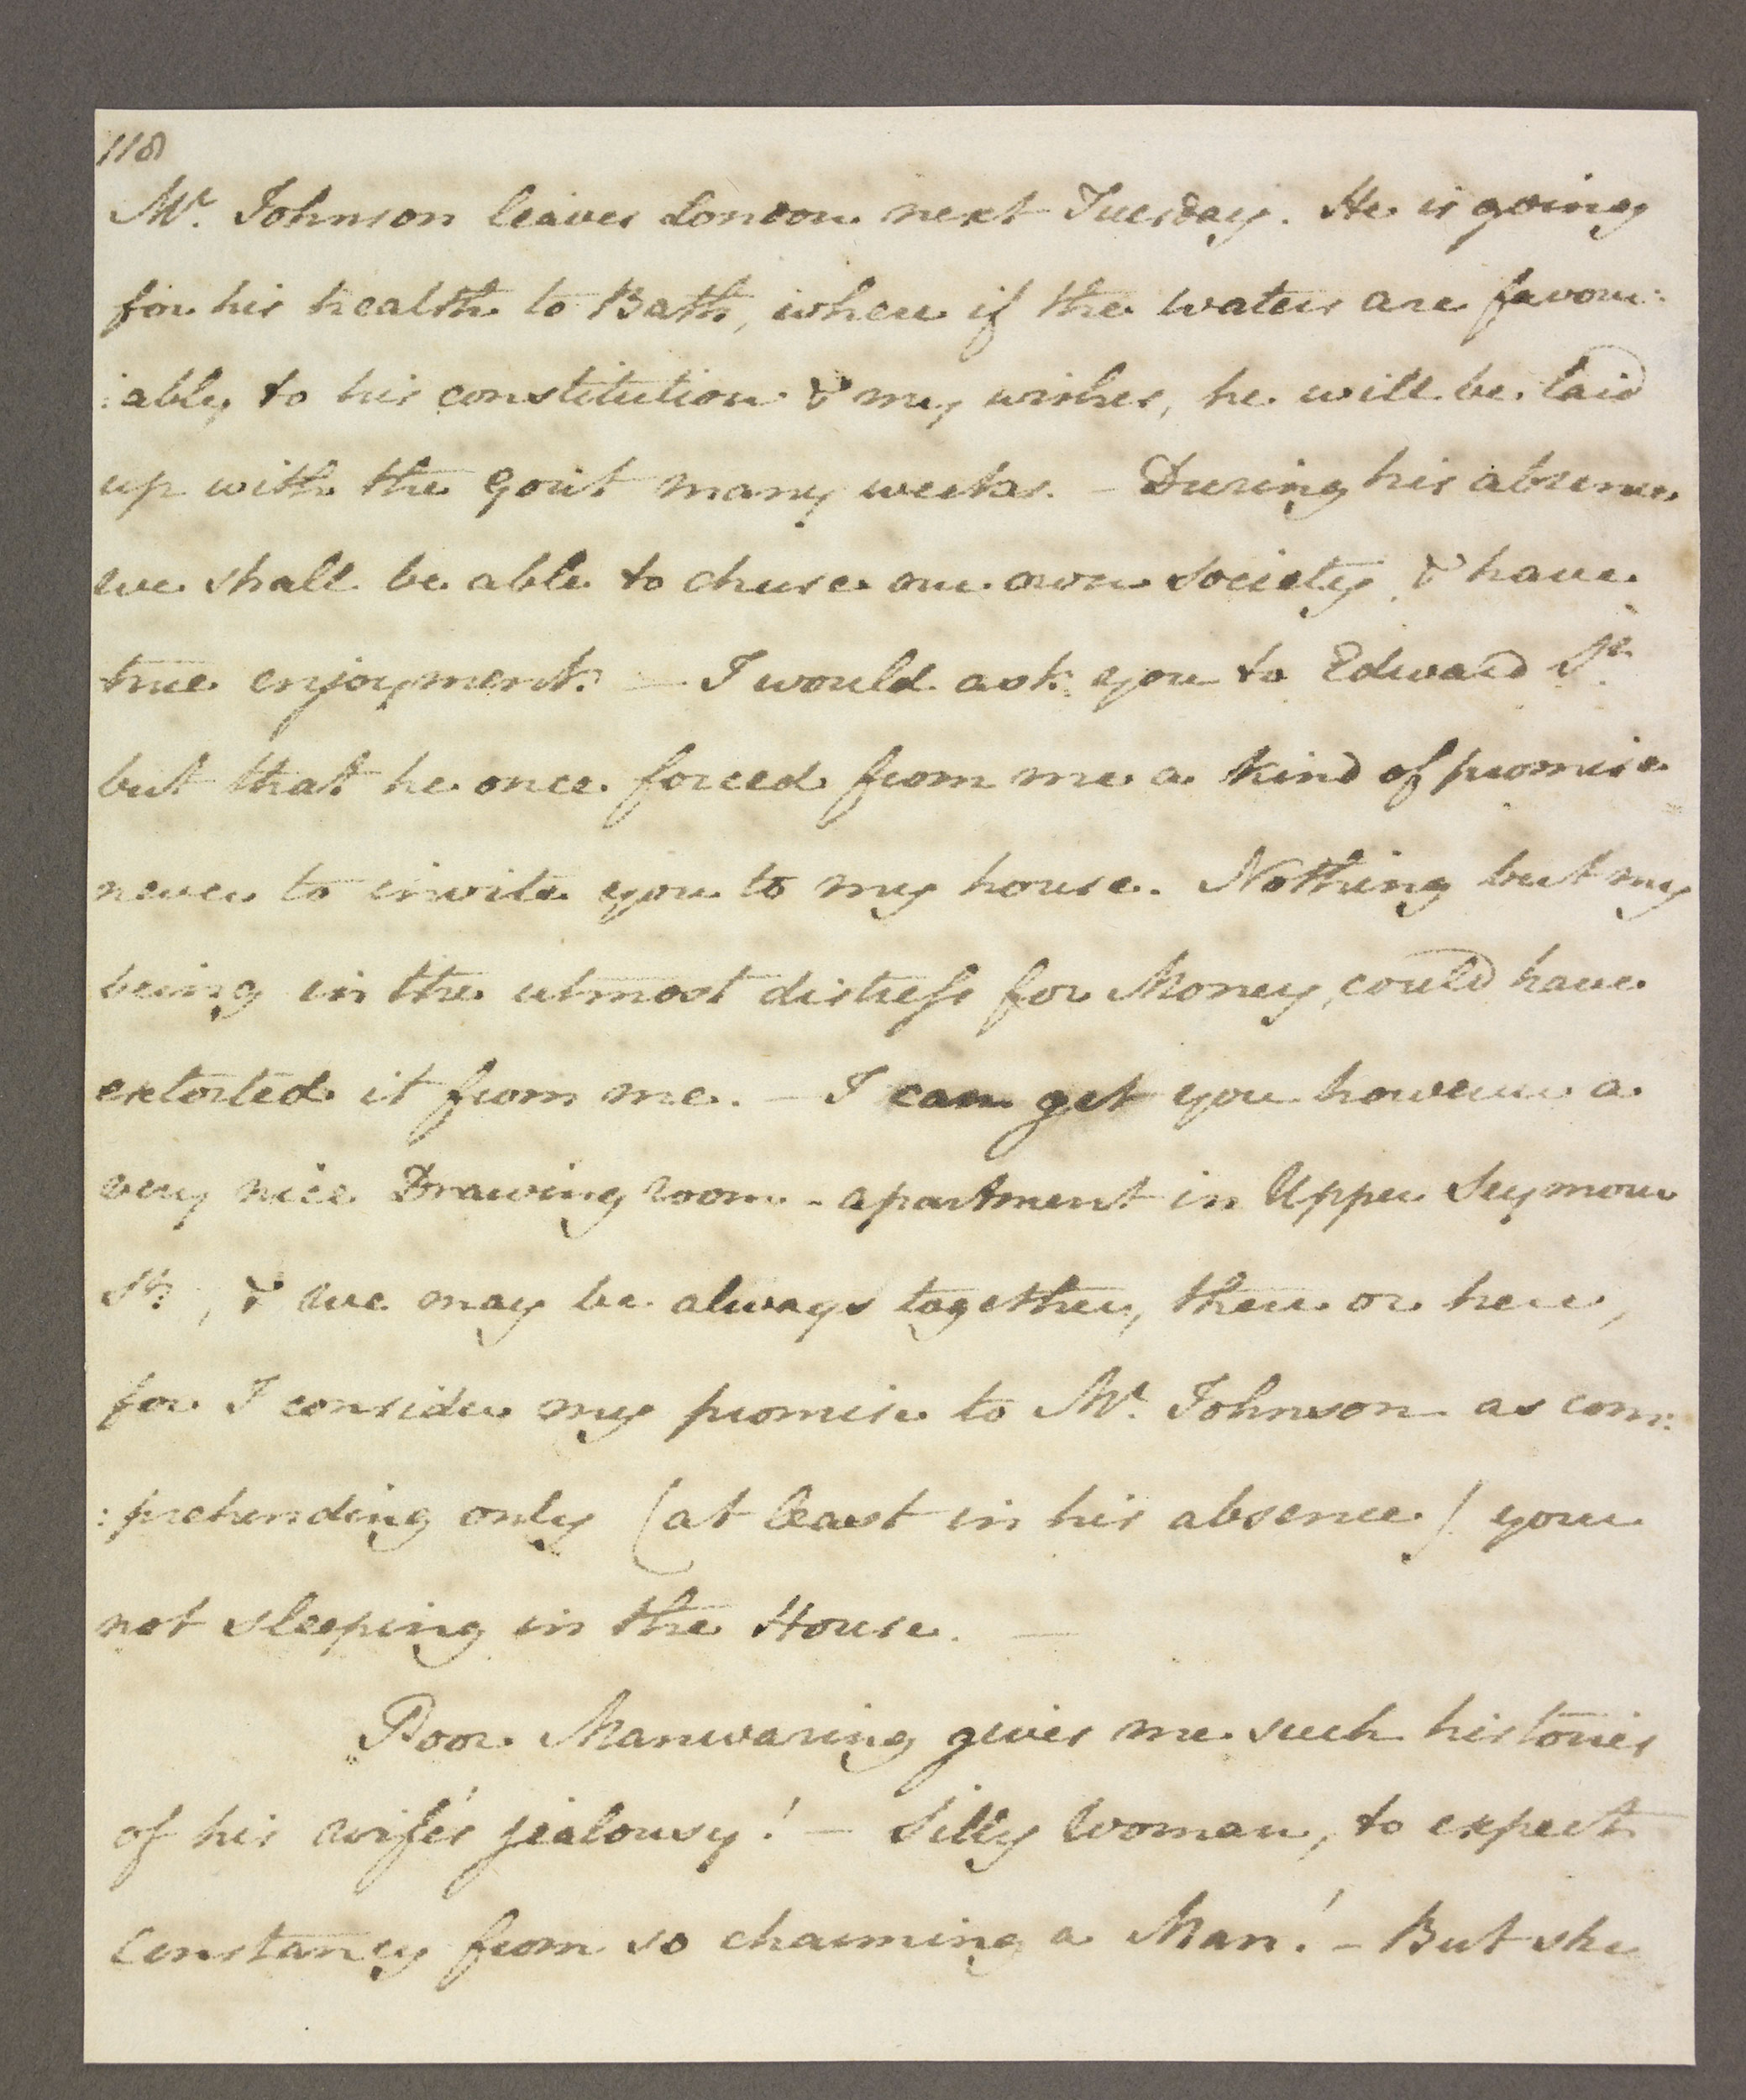 118
Mr. Johnson leaves London next Tuesday. He is going
for his health to Bath, where if the waters are favour:
:able to his constitution & my wishes, he will be laid
up with the Gout many weeks. – During his absence
we shall be able to chuse our own society, & have
true enjoyment. – I would ask you to Edward St.
but that he once forced from me a kind of promise
never to invite you to my house. Nothing but my
being in the utmost distress for Money, could have
extorted it from me. – I can get you however a
very nice Drawing room-apartment in Upper Seymour
St., & we may be always together, there or here,
for I consider my promise to Mr. Johnson as com:
:prehending only (at least in his absence) your
not sleeping in the House. –
Poor Manwaring gives me such histories
of his wife's jealousy! – Silly Woman, to expect
constancy from so charming a Man! – But she